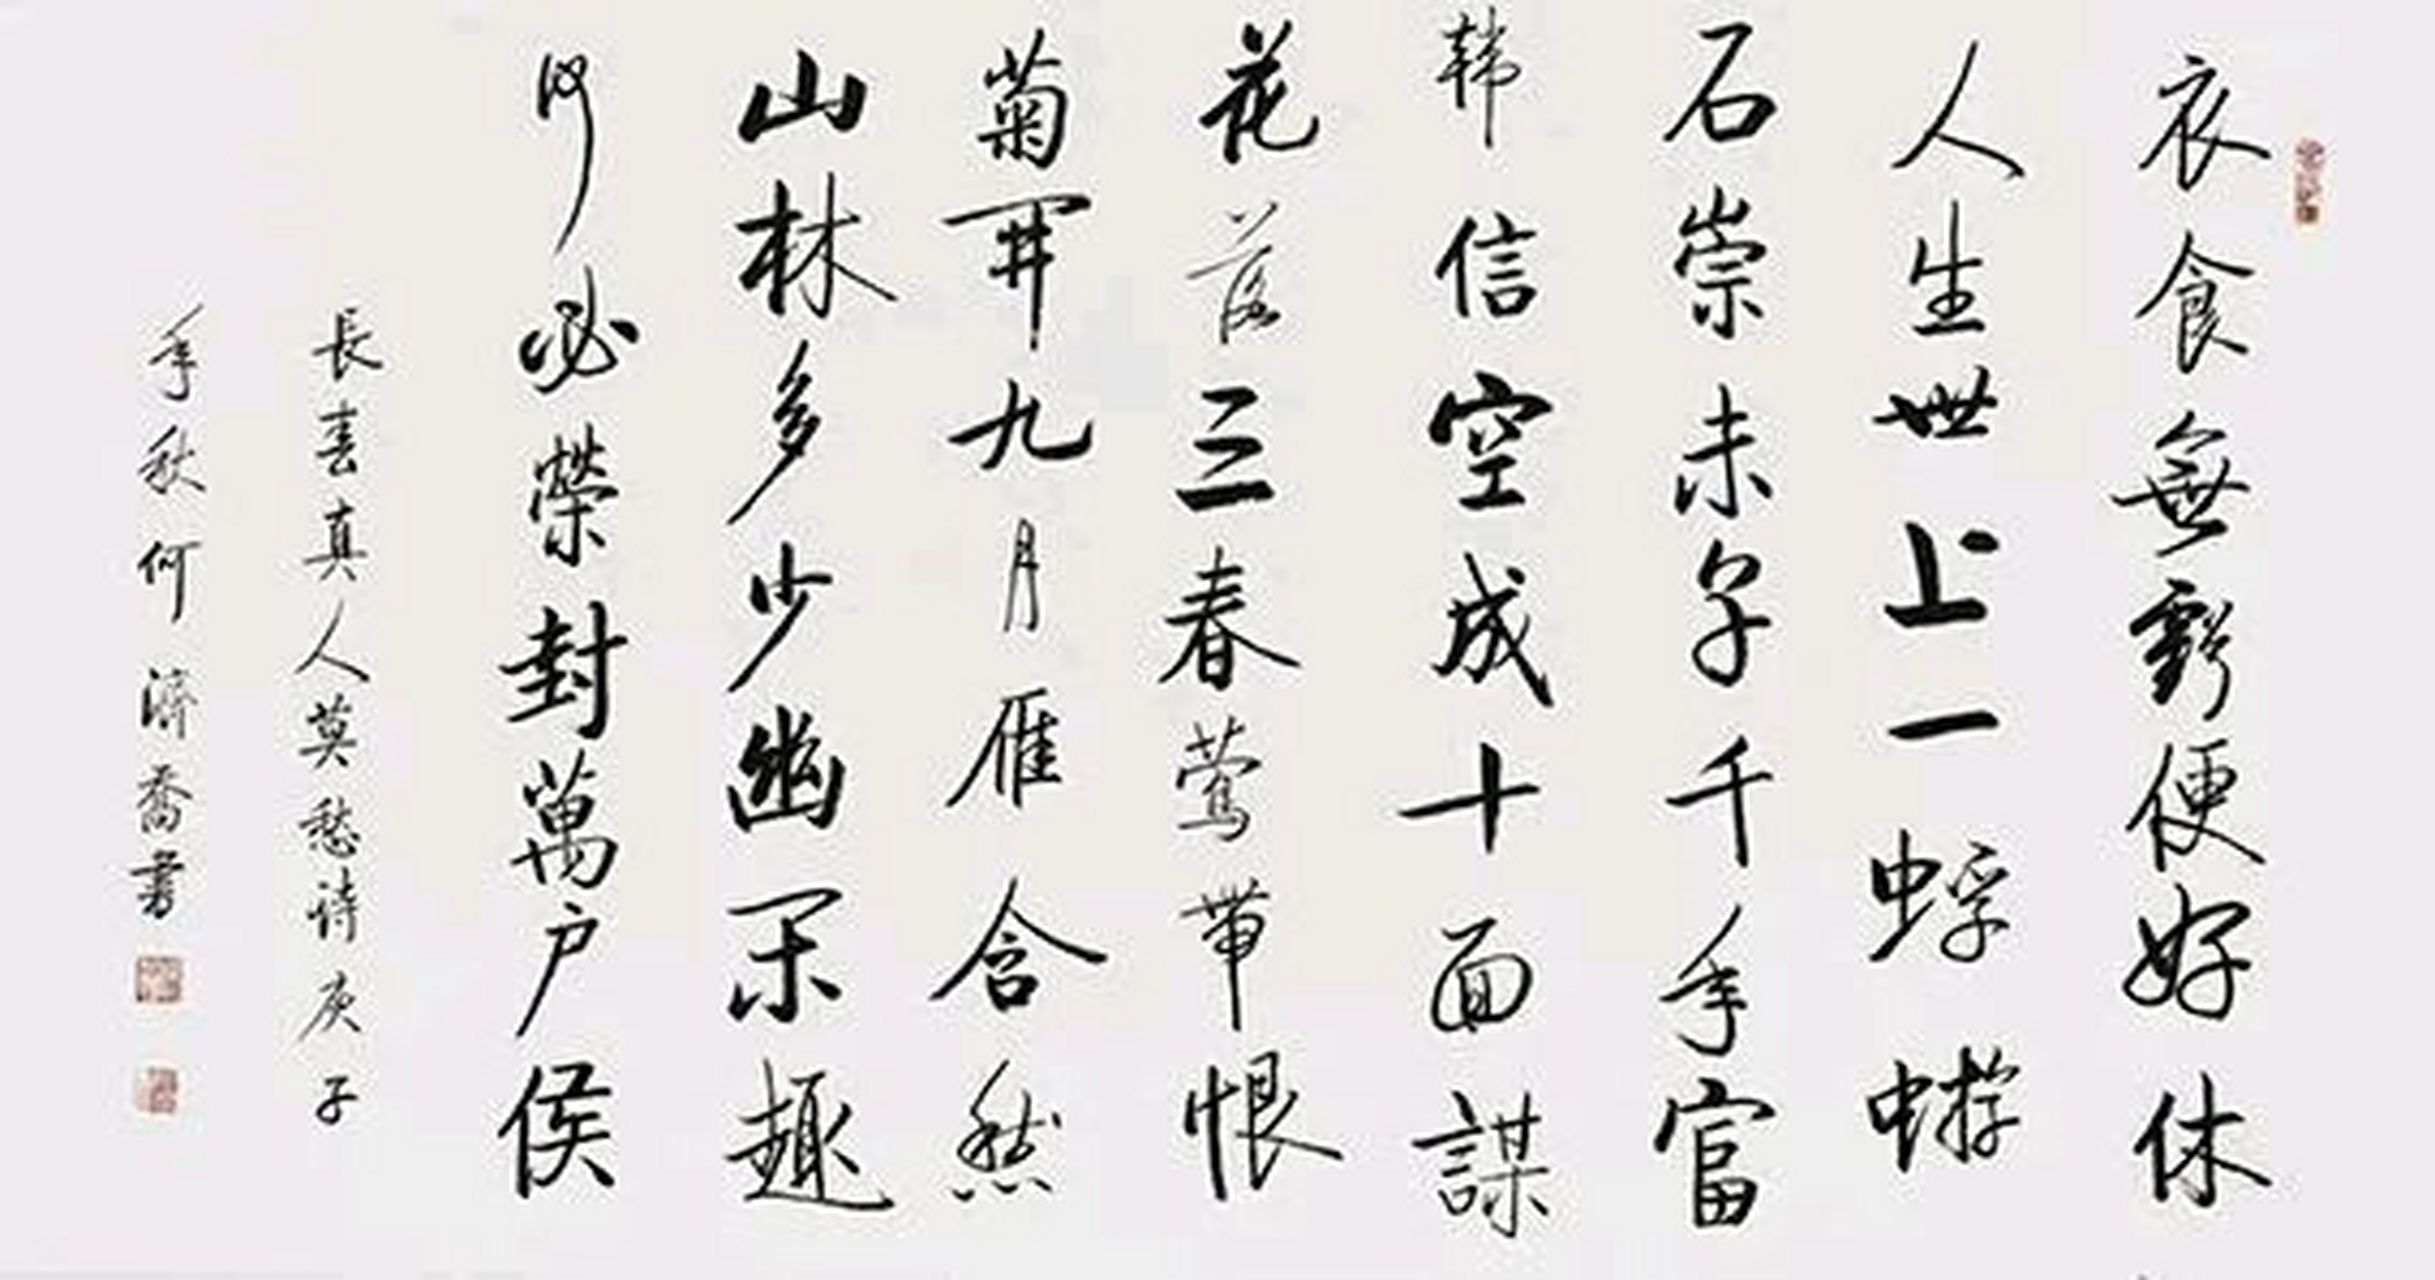 衣食無虧便好休
人生世上一蜉蝣
石崇未享千年富
韩信空成十面謀
花落三春莺带恨
菊開九月雁含愁
山林多少幽閑趣
何必榮封萬户侯
長春真人莫愁诗庚子
年秋何濟喬書